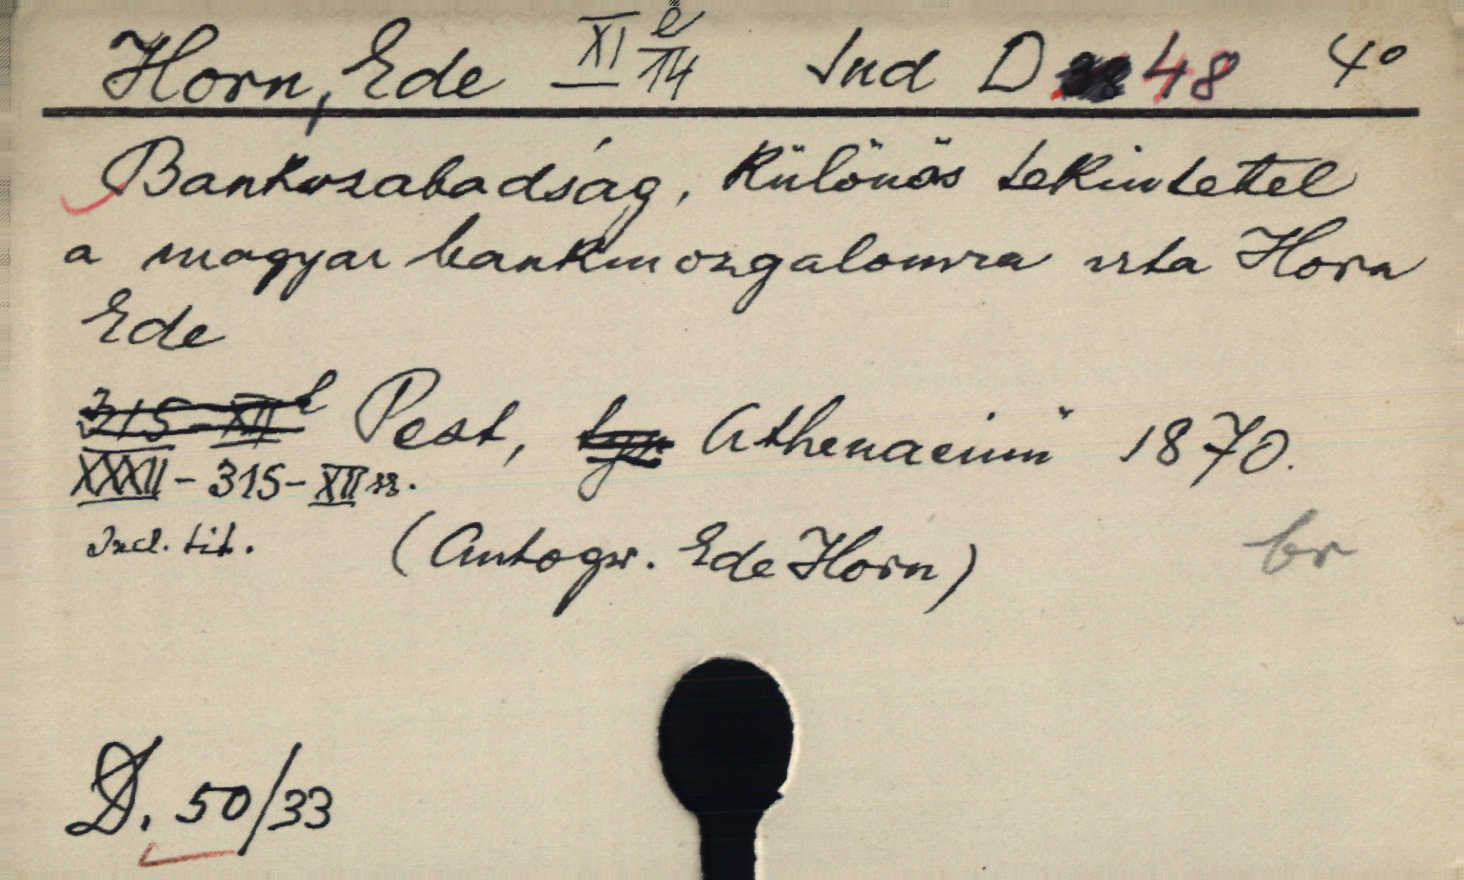 Horn, Ede XI e/14 Ind D 48 4°
Bankszabadság, különös tekintettel
a magyar bankmozgalomra irta Horn
Ede
315-XII l Pest, Athenaeum 1870.
XXXII - 315 - XII sz.
Incl. tit. (Autogr. Ede Horn) br
D. 50/33